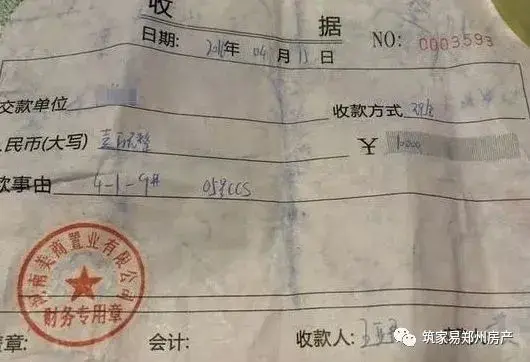 收 据
日期: 2016年 04月 15日 NO: 0003593
交款单位 收款方式 现金
人民币(大写) 壹万元整 ¥ 10000
款事由 4-1-9#
河南美商置业有限公司
财务专用章
盖章: 会计: 收款人:
筑家易郑州房产